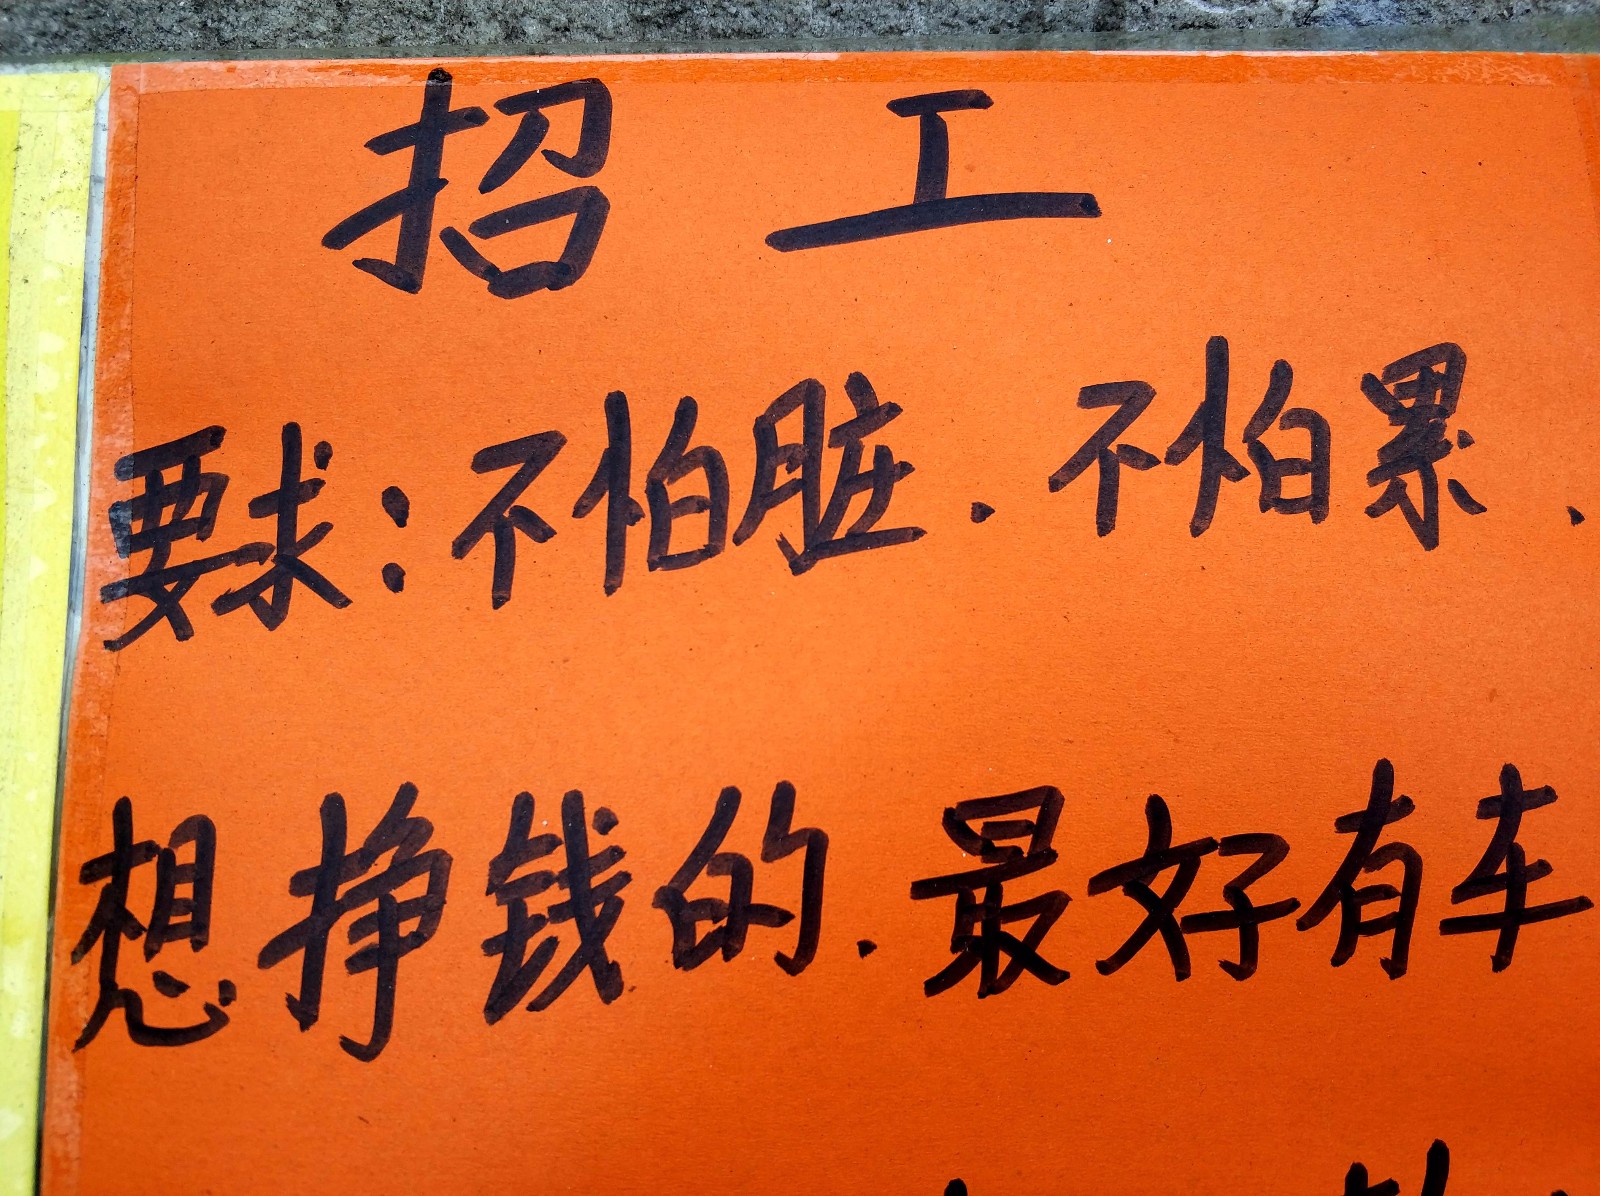 招工
要求：不怕脏.不怕累、
想挣钱的.最好有车